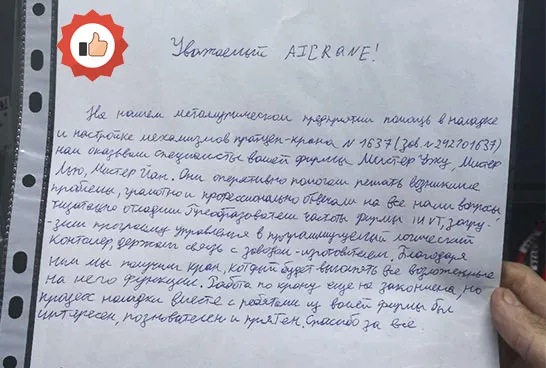 Уважаемый AICRANE!
На нашем металургическом предприятии помощь в наладке
и настройке механизмов пратцен-крана N1637 (зав.N242701637)
нам оказывали специалисты вашей фирмы, Мистер Чжу, Мистер
Лую, Мистер Иан. Они оперативно помогали решать возникшие
проблемы, грамотно и профессионально отвечали на все наши вопросы
тщательно отладили Преобразователи частоты фирмы inVT, загру-
зили программу управления в программируемый логический
контолер, держали связь с заводом-изготовителем. Благодаря
ним мы получили кран, который будет выполнять все возложенные
на него функции. Работа по крану еще не закончена, но
процесс наладки вместе с ребятами из вашей фирмы был
интересен, познователен и приятен. Спасибо за все.